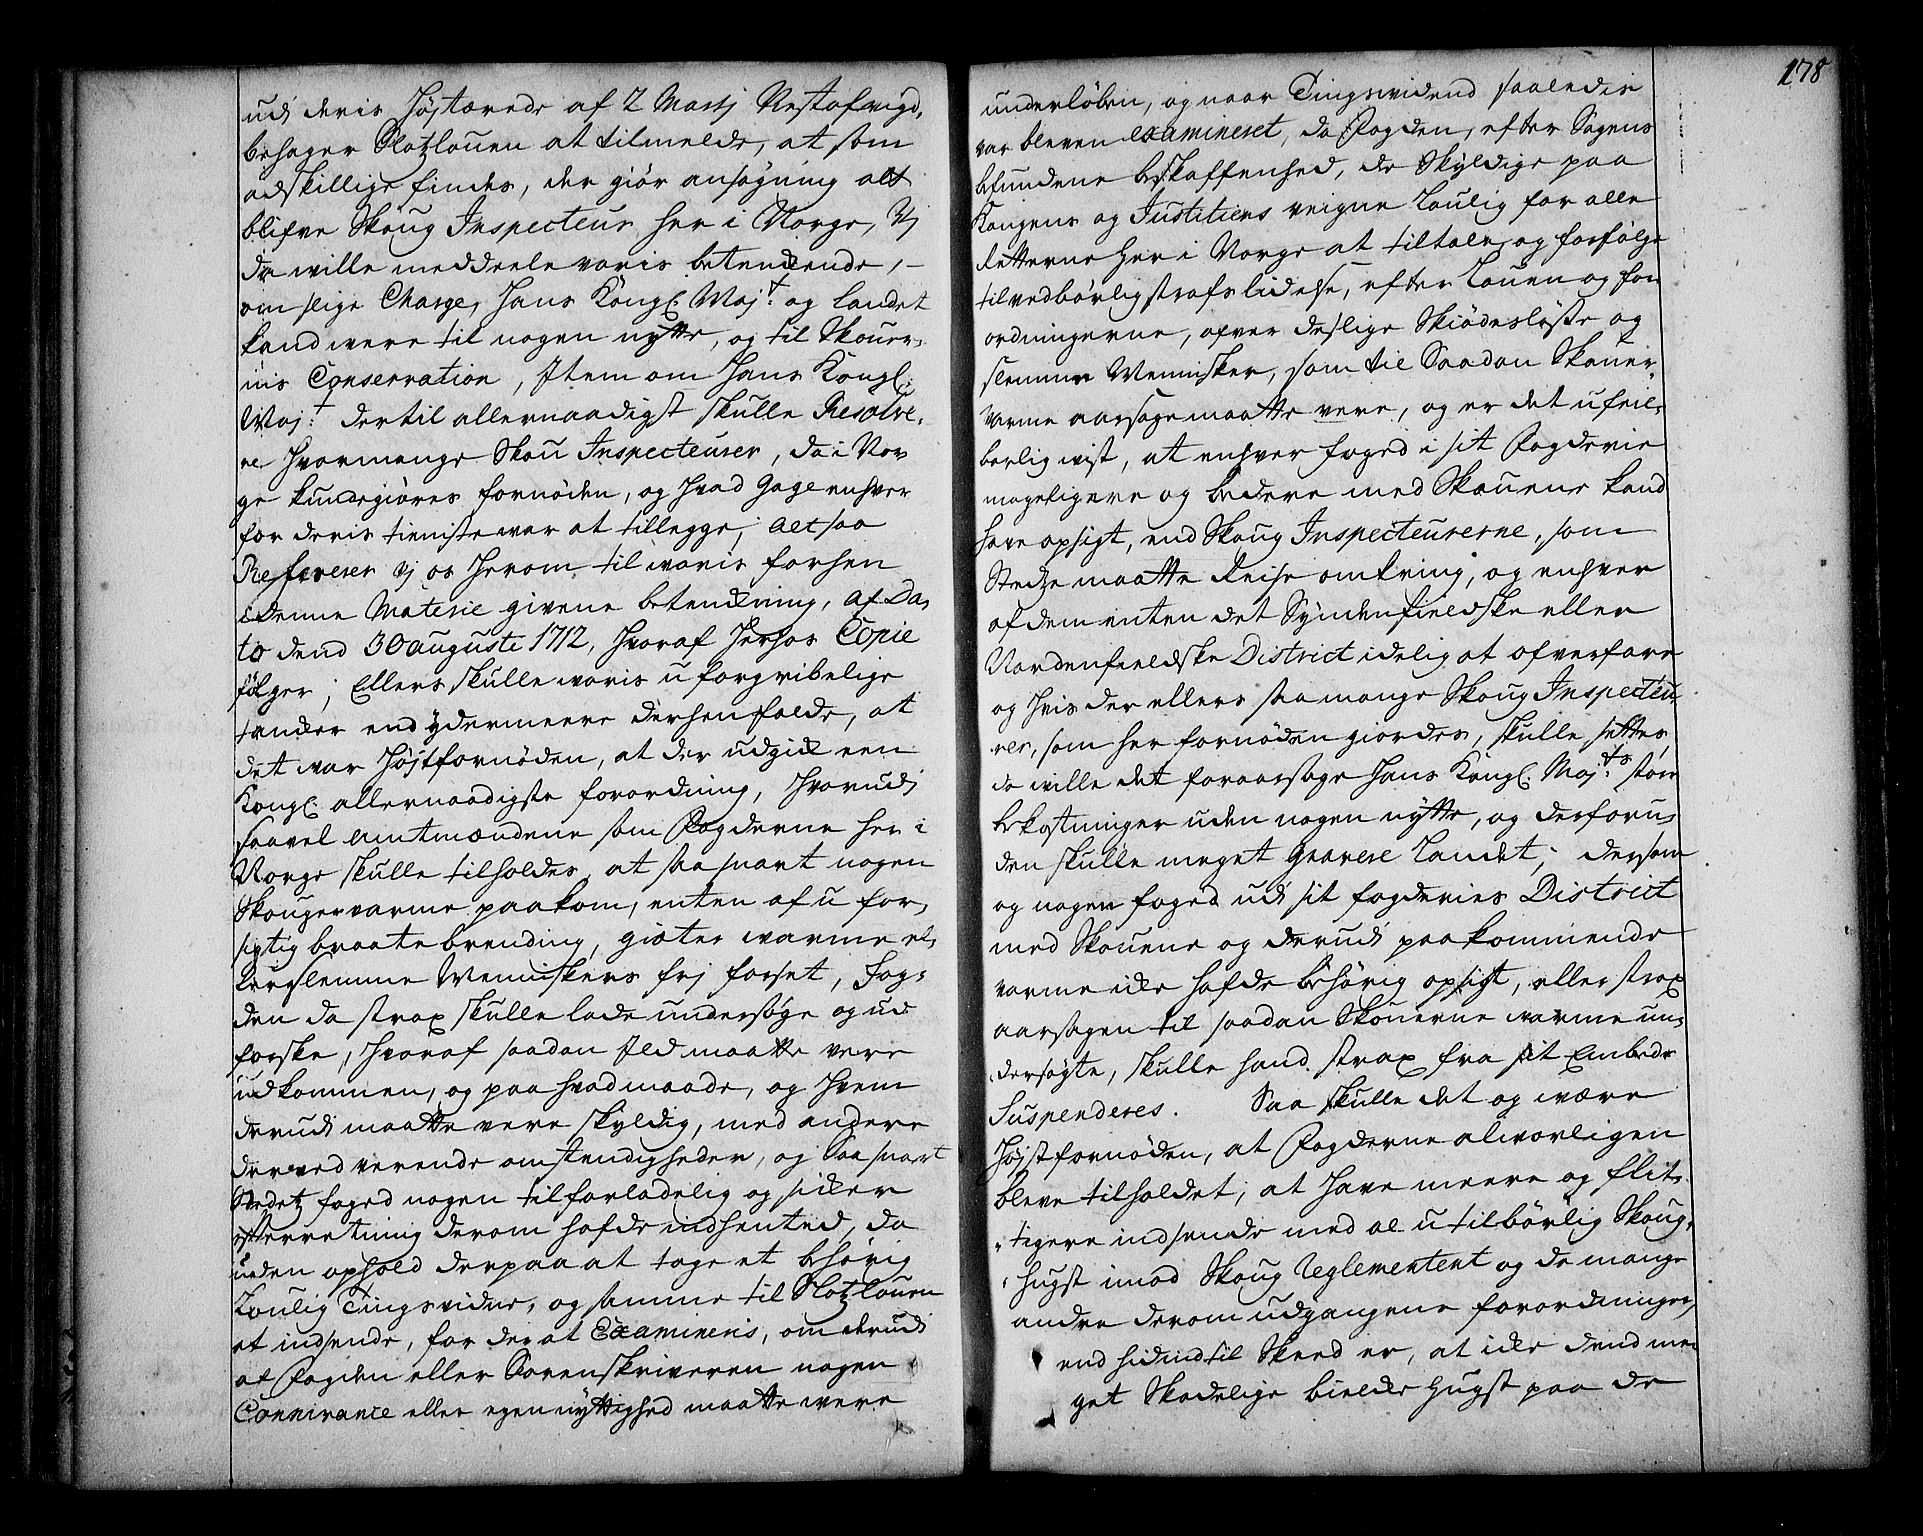 udi deris Højtærede af 2 Martj Nestafvigt,
behager Slotzlouen at tilmelde, at som
adskillige findes, der giör ansögning att
blifve Skoug Inspecteur her i Norge, Vj
da wille meddeele voris betenckende,
om slige Charge, Hans Kongl: Maj:t og Landet
kand were til nogen nytte, og til Skouer,,
nis Conservation, Item om Hans Kongl:
Maj:t dertil allernaadigst skulle Resolve,,
re Hvormange Skou Inspecteurer, da i Nor
ge kunde giöres fornöden, og Hvad Gage enhver
for deris tieniste war at tillegge; altsaa
Refererer vj os Herom til woris forhen
i denne Materie givene betenckning, af Da,,
to dend 30 auguste 1712, Hvoraf Herhos Copie
fölger; Ellers skulle woris uforgribelige
tancker end ydermeere derhen falde, at
det war Højstfornöden, at der udgick een
Kongl. allernaadigste forordning, Hvorudj
saavel amtmændene som Fogderne her i
Norge skulle tilholdes, at saa snart nogen
Skougevarme paakom, enten af ufor,,
sigtig braatebrending, giæter warme el,,
ler slemme Menniskers frj forset, Fog,,
den da strax skulle lade undersöge og ud
forske, Hvoraf saadan Ild maatte vere
udkommen, og paa hvad maade, og Hvem
derudj maatte vere skyldig, med andere
derved verende omstendigheder, og Saa snart
Stedetz foged nogen tilforladelig og sicker
efterretning derom hafde indhented, da
uden ophold derpaa at tage et behörig
Loulig Tingsvidne, og samme til Slotzlouen
at indsende, for der at Examineris, om derudj
af Fogden eller Sorenskriveren nogen
Connivance eller egennyttighed maatte were
178
underlöben, og naar Tingsvidned saaledis
var bleven examineret, da Fogden, efter Sagens
befundene beskaffenhed, de Skyldige paa
Kongens og Justitiens veigne Loulig for alle
Retterne her i Norge at tiltale og forfölge
til vedbörlig strafs lidelse, efter Louen og for
ordningerne, ofver deslige Skiödeslösse og
slemme Mennisker, som til Saadan Skouer,,
varme aarsage maatte vere, og er det ufeil,,
barlig vist, at enhver foged i sit Fogderie
mageligere og bedere med Skouene kand
have opsigt, end Skoug Inspecteurerne, som
Stedze maatte Reise omkring, og enhver
af dem enten det Syndenfieldske eller
Nordenfieldske District idelig at ofverfare
og Hvis der ellers saa mange Skoug Inspecteu,,
rer, som her fornöden giordes, skulle settes,
da wille det foraarsage Hans Kongl: Maj:ts store
bekostninger uden nogen nytte, og desforu,,
den skulle meget Gravere Landet; dersom
og nogen foged udi sit fogderies District
med Skouene og derudi paakommende
varme icke hafde behörig opsigt, eller strax
aarsagen til saadan Skouerne warme un,,
dersögte, skulle hand strax fra sit Embede
Suspenderes. Saa skulle det og være
Højstfornöden, at Fogderne alvorligen
bleve tilholdet, at have meere og flit,,
tigere indseende med al utilbörlig Skoug,,
hugst imod Skoug Reglementent og de mange
andre derom udgangene forordninger,
end hidindtil Skeed er, at icke dend me
get Skadelige bielcke Hugst paa de